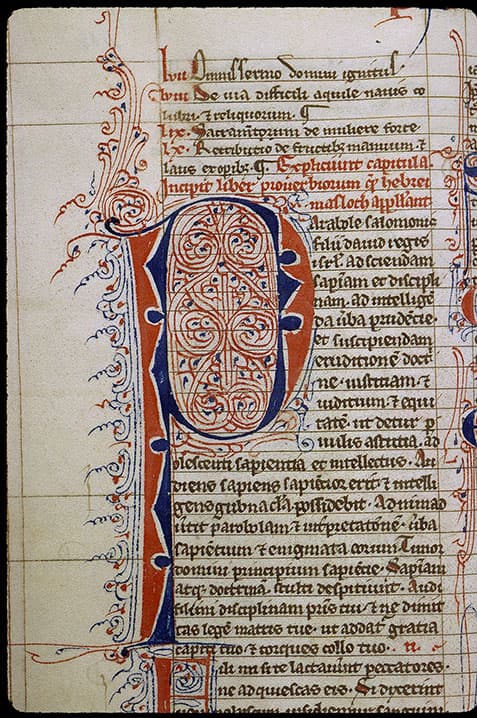 lvii Omnis sermo domini ignitus.
lviii De uia difficili aquile nauis co
lubri ⁊ reliquorum. ¶
lix. Sacramentorum de muliere forte
lx. Retributio de fructibꝫ manuum ⁊
laus ex opibꝫ. ¶. Expliciunt capitula.
Incipit liber prouerbiorum qͥ hebrei
masloth appellant
Parabole salomonis
filii dauid regis
isrl̄. ad sciendam
sapīam et discipli
nam. ad intellige
da ūba prudētie.
et suscipiendam
eruditionē doct
ne. iustitiam. ⁊
iudicium ⁊ equi
tatē. ut detur p
uulis astutia. ad
olescenti sapientia et intellectus. Au
diens sapiens sapiētior erit. ⁊ intelli
gens gubnacl̄a possidebit. Aduimad
uertit parabolam ⁊ intpretationē. ūba
sapiētum ⁊ enigmata eorum. Timor
domini principium sapiētie. Sapiam
atqꝫ doctrinā. stulti despiciunt. Audi
fili mi disciplinam pris tui ⁊ ne dimit
tas legē matris tue. ut addat̄ gratia
capiti tuo ⁊ torques collo tuo. ii.
Fili mi si te lactauerint peccatores.
ne adquiescas eis. Si dixerint